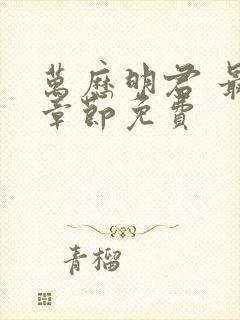 萬曆明君 最
章節免費
青榴